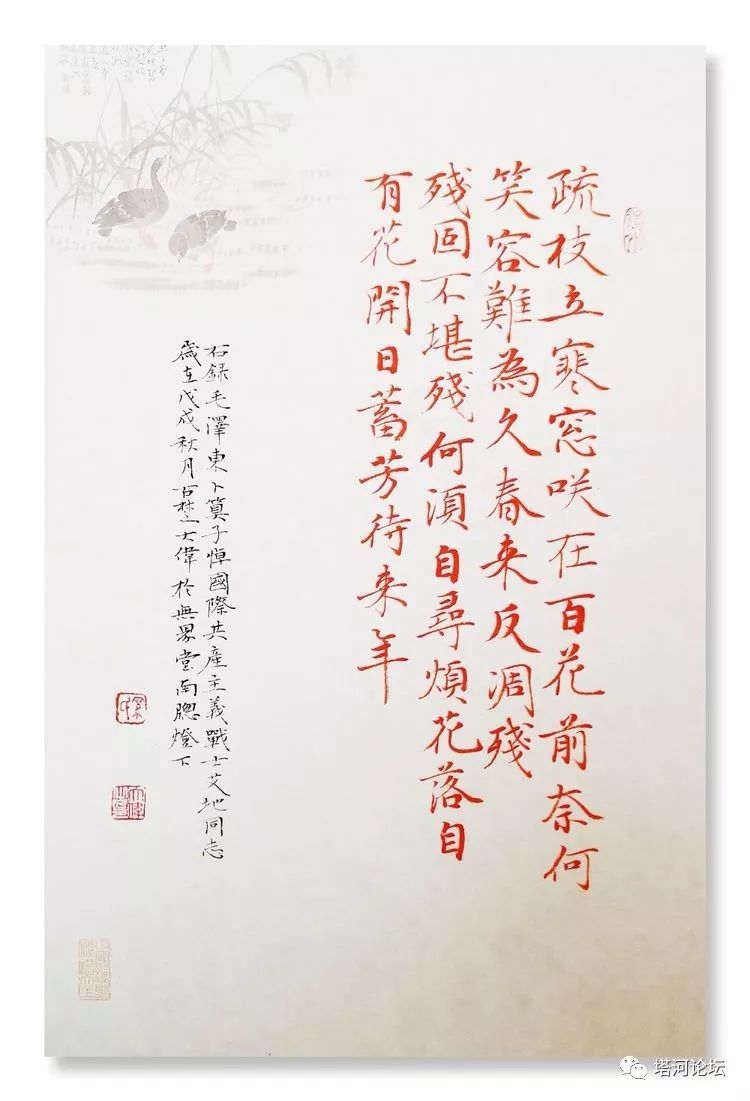 疏枝立寒窓咲在百花前奈何
笑容難為久春来反凋殘
殘固不堪殘何須自尋煩花落自
有花開日蓄芳待来年
右録毛澤東卜算子悼國際共產主義戰士艾地同志
歲在戊戌秋月古楚大偉於無界堂南牕燈下
塔河论坛